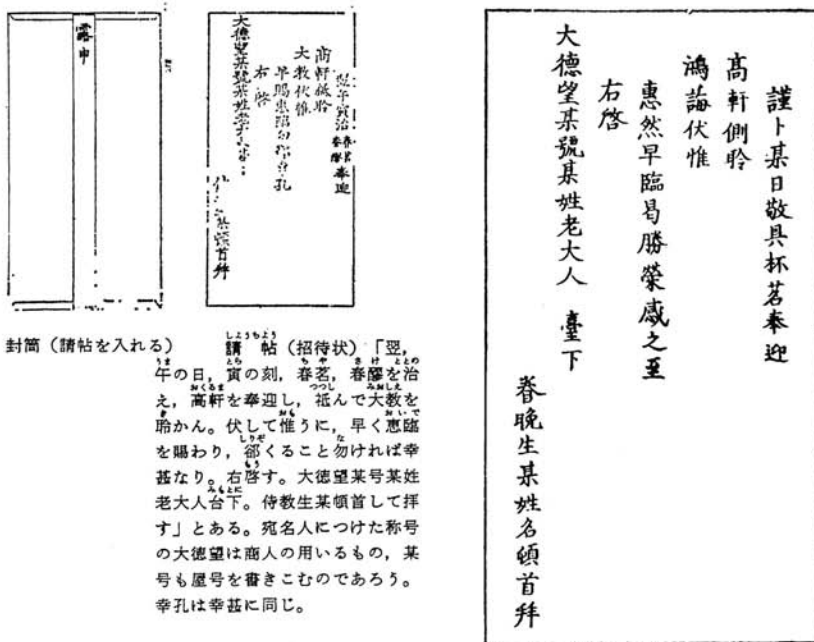 露申
午寅治 春茗 春醪 奉迎
高軒祗聆
大教伏惟
早賜惠臨勿卻幸孔
右啓
大德望某號某姓老大人
某頓首拜
封筒（請帖を入れる）
しようちよう
請帖（招待状）「翌,
うま とら ちや さけ ととの
午の日，寅の刻，春茗，春醪を治
おくるま つつし みおしえ
え，高軒を奉迎し，祗んで大教を
き おも おいで
聆かん。伏して惟うに，早く恵臨
しりぞ な
を賜わり，郤くること勿ければ幸
もう
甚なり。右啓す。大徳望某号某姓
みもとに
老大人台下。侍教生某頓首して拝
す」とある。宛名人につけた称号
の大徳望は商人の用いるもの，某
号も屋号を書きこむのであろう。
幸孔は幸甚に同じ。
謹卜某日敬具杯茗奉迎
高軒側聆
鴻誨伏惟
惠然早臨曷勝榮感之至
右啓
大德望某號某姓老大人 臺下
眷晚生某姓名頓首拜